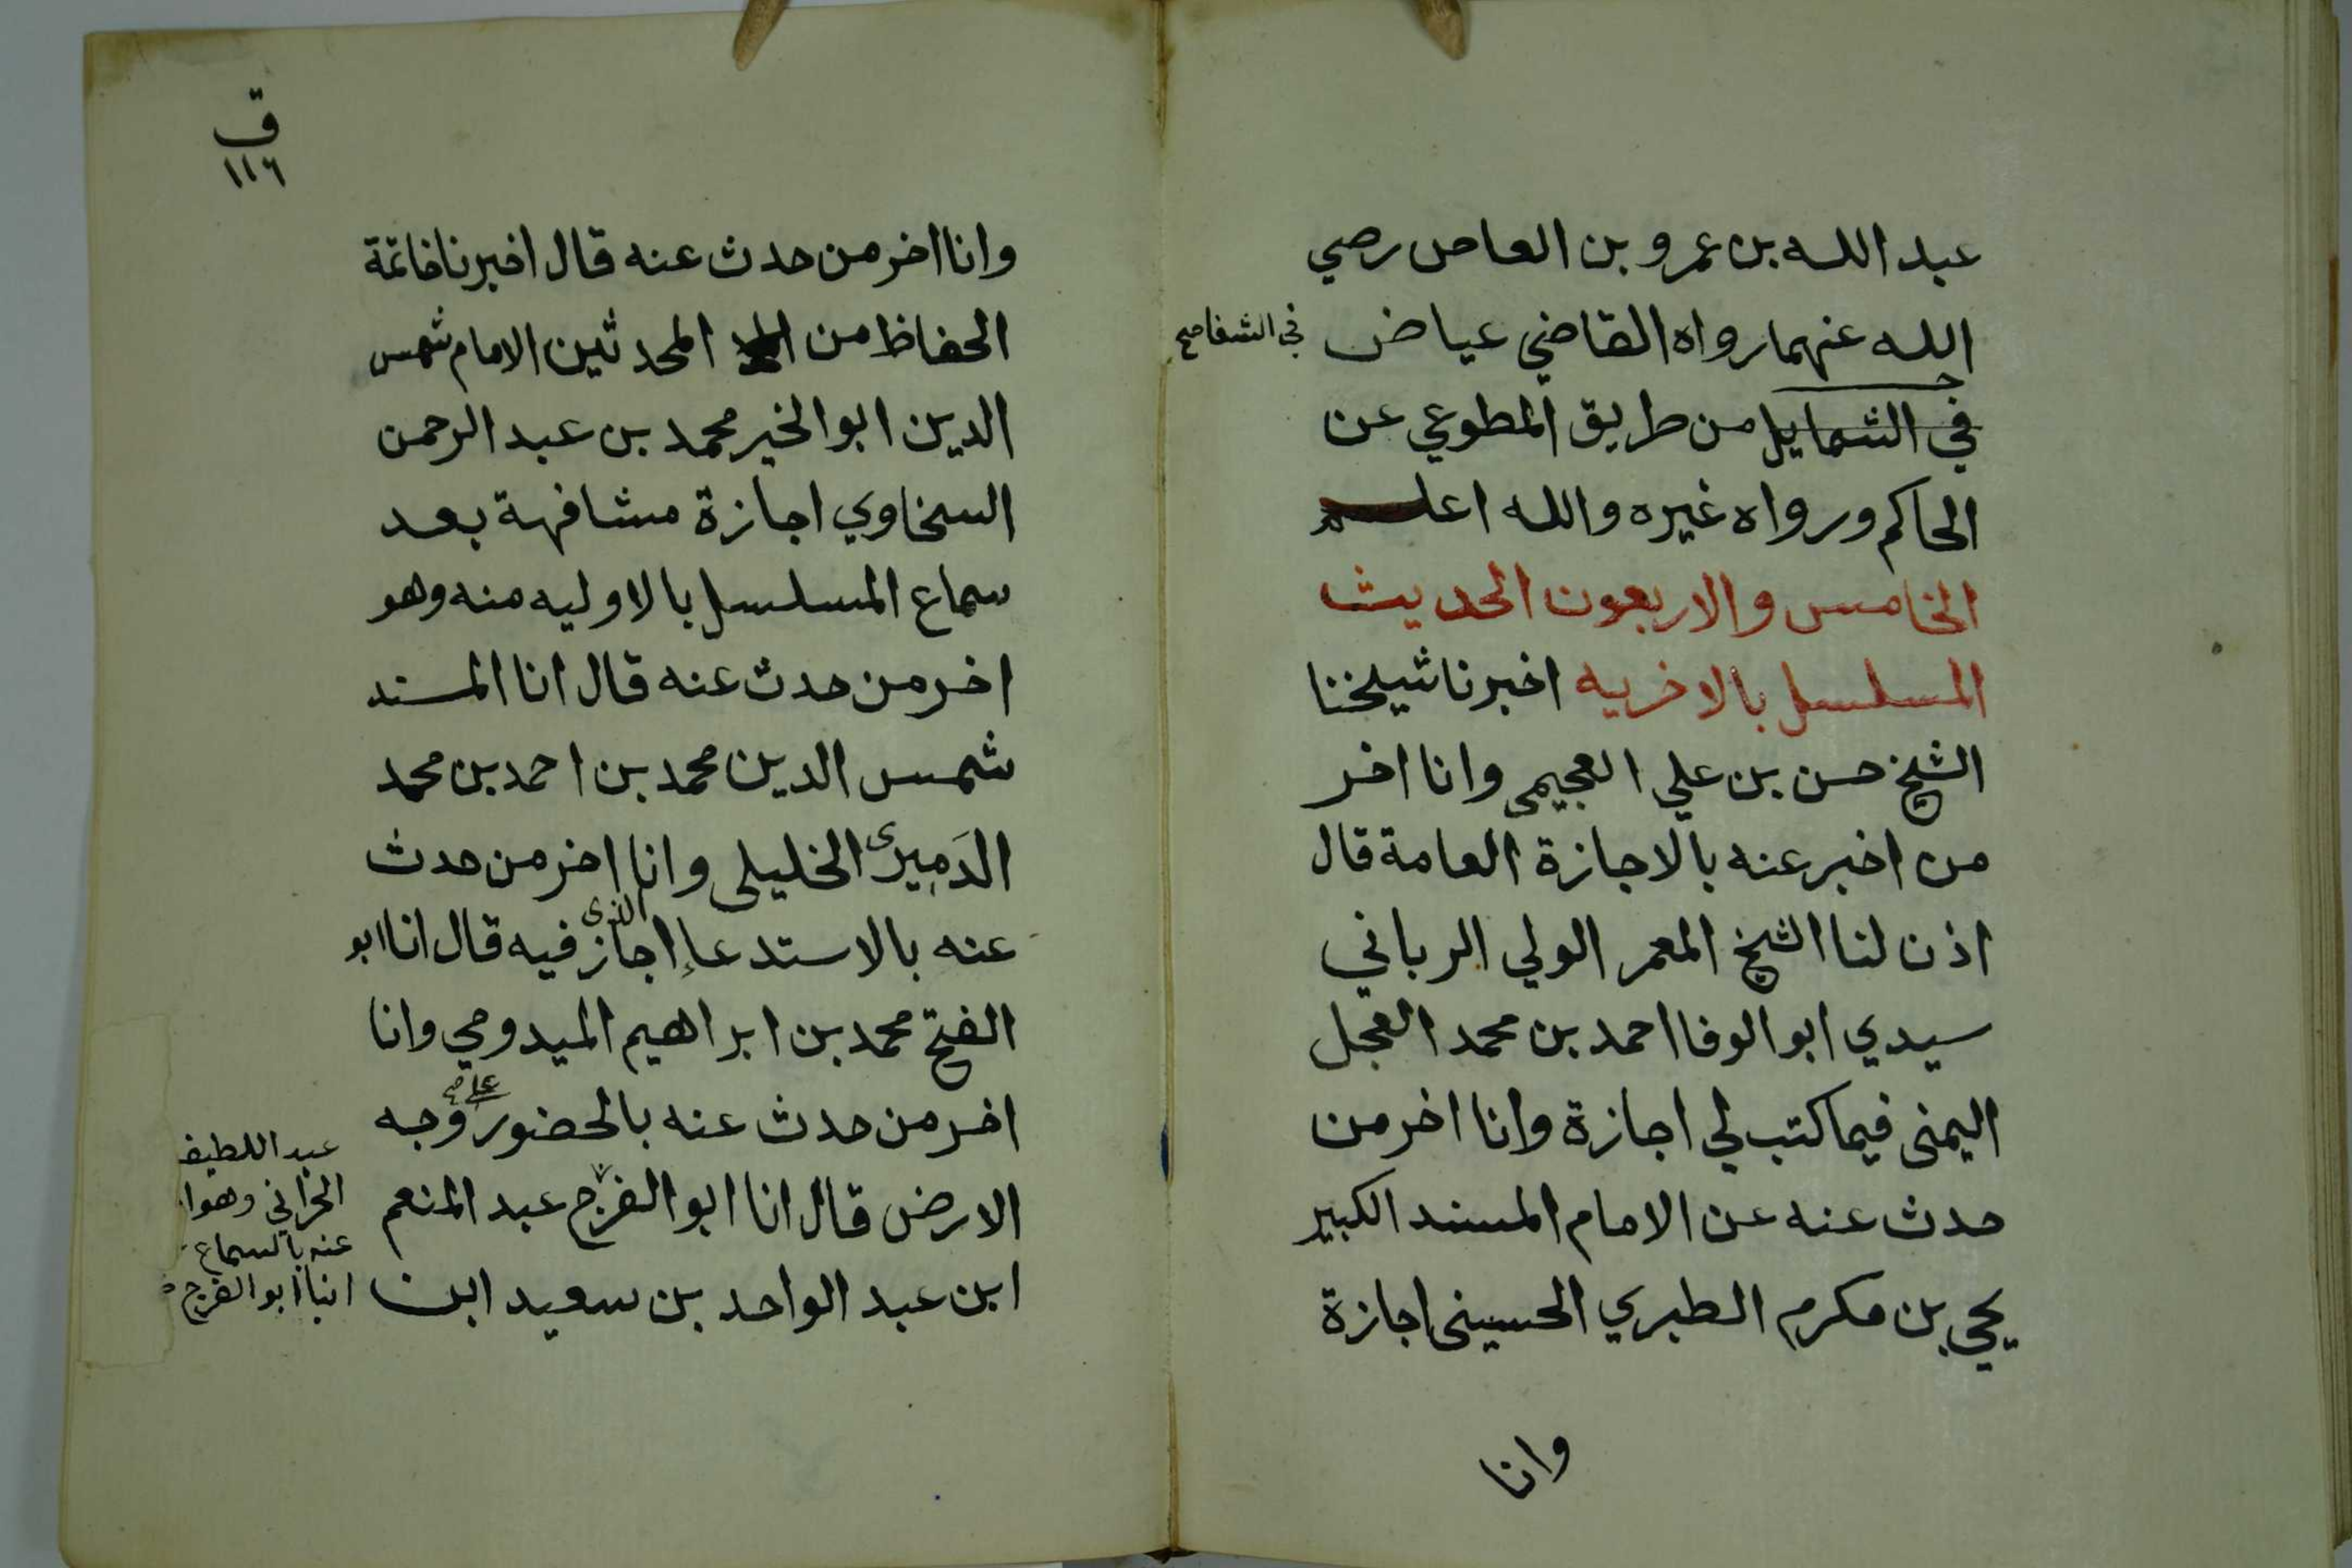 عبد الله بن عمرو بن العاص رضي
الله عنهما رواه القاضي عياض
في الشفا صح
في الشمايل من طريق المطوعي عن
الحاكم ورواه غيره والله اعلم
الخامس والاربعون الحديث
المسلسل بالاخريه اخبرنا شيخنا
الشيخ حسن بن علي العجيمي وانا اخر
من اخبر عنه بالاجازة العامة قال
اذن لنا الشيخ المعمر الولي الرباني
سيدي ابو الوفا احمد بن محمد العجل
اليمنى فيما كتب لي اجازة وانا اخر من
حدث عنه عن الامام المسند الكبير
يحي بن مكرم الطبري الحسينى اجازة
وانا
ق
١١٦
وانا اخر من حدث عنه قال اخبرنا خاتمة
الحفاظ من المحدثين الامام شمس
الدين ابو الخير محمد بن عبد الرحمن
السخاوي اجازة مشافهة بعد
سماع المسلسل بالاوليه منه وهو
اخر من حدث عنه قال انا المسند
شمس الدين محمد بن احمد بن محمد
الدَميرى الخليلى وانا اخر من حدث
عنه بالاستدعاء الذى اجاز فيه قال انا ابو
الفتح محمد بن ابراهيم الميدومي وانا
اخر من حدث عنه بالحضور على وجه
الارض قال انا ابو الفرج عبد المنعم
ابن عبد الواحد بن سعيد ابن
عبد اللطيف
الحراني وهو ا
عنه بالسماع
انبا ابو الفرج